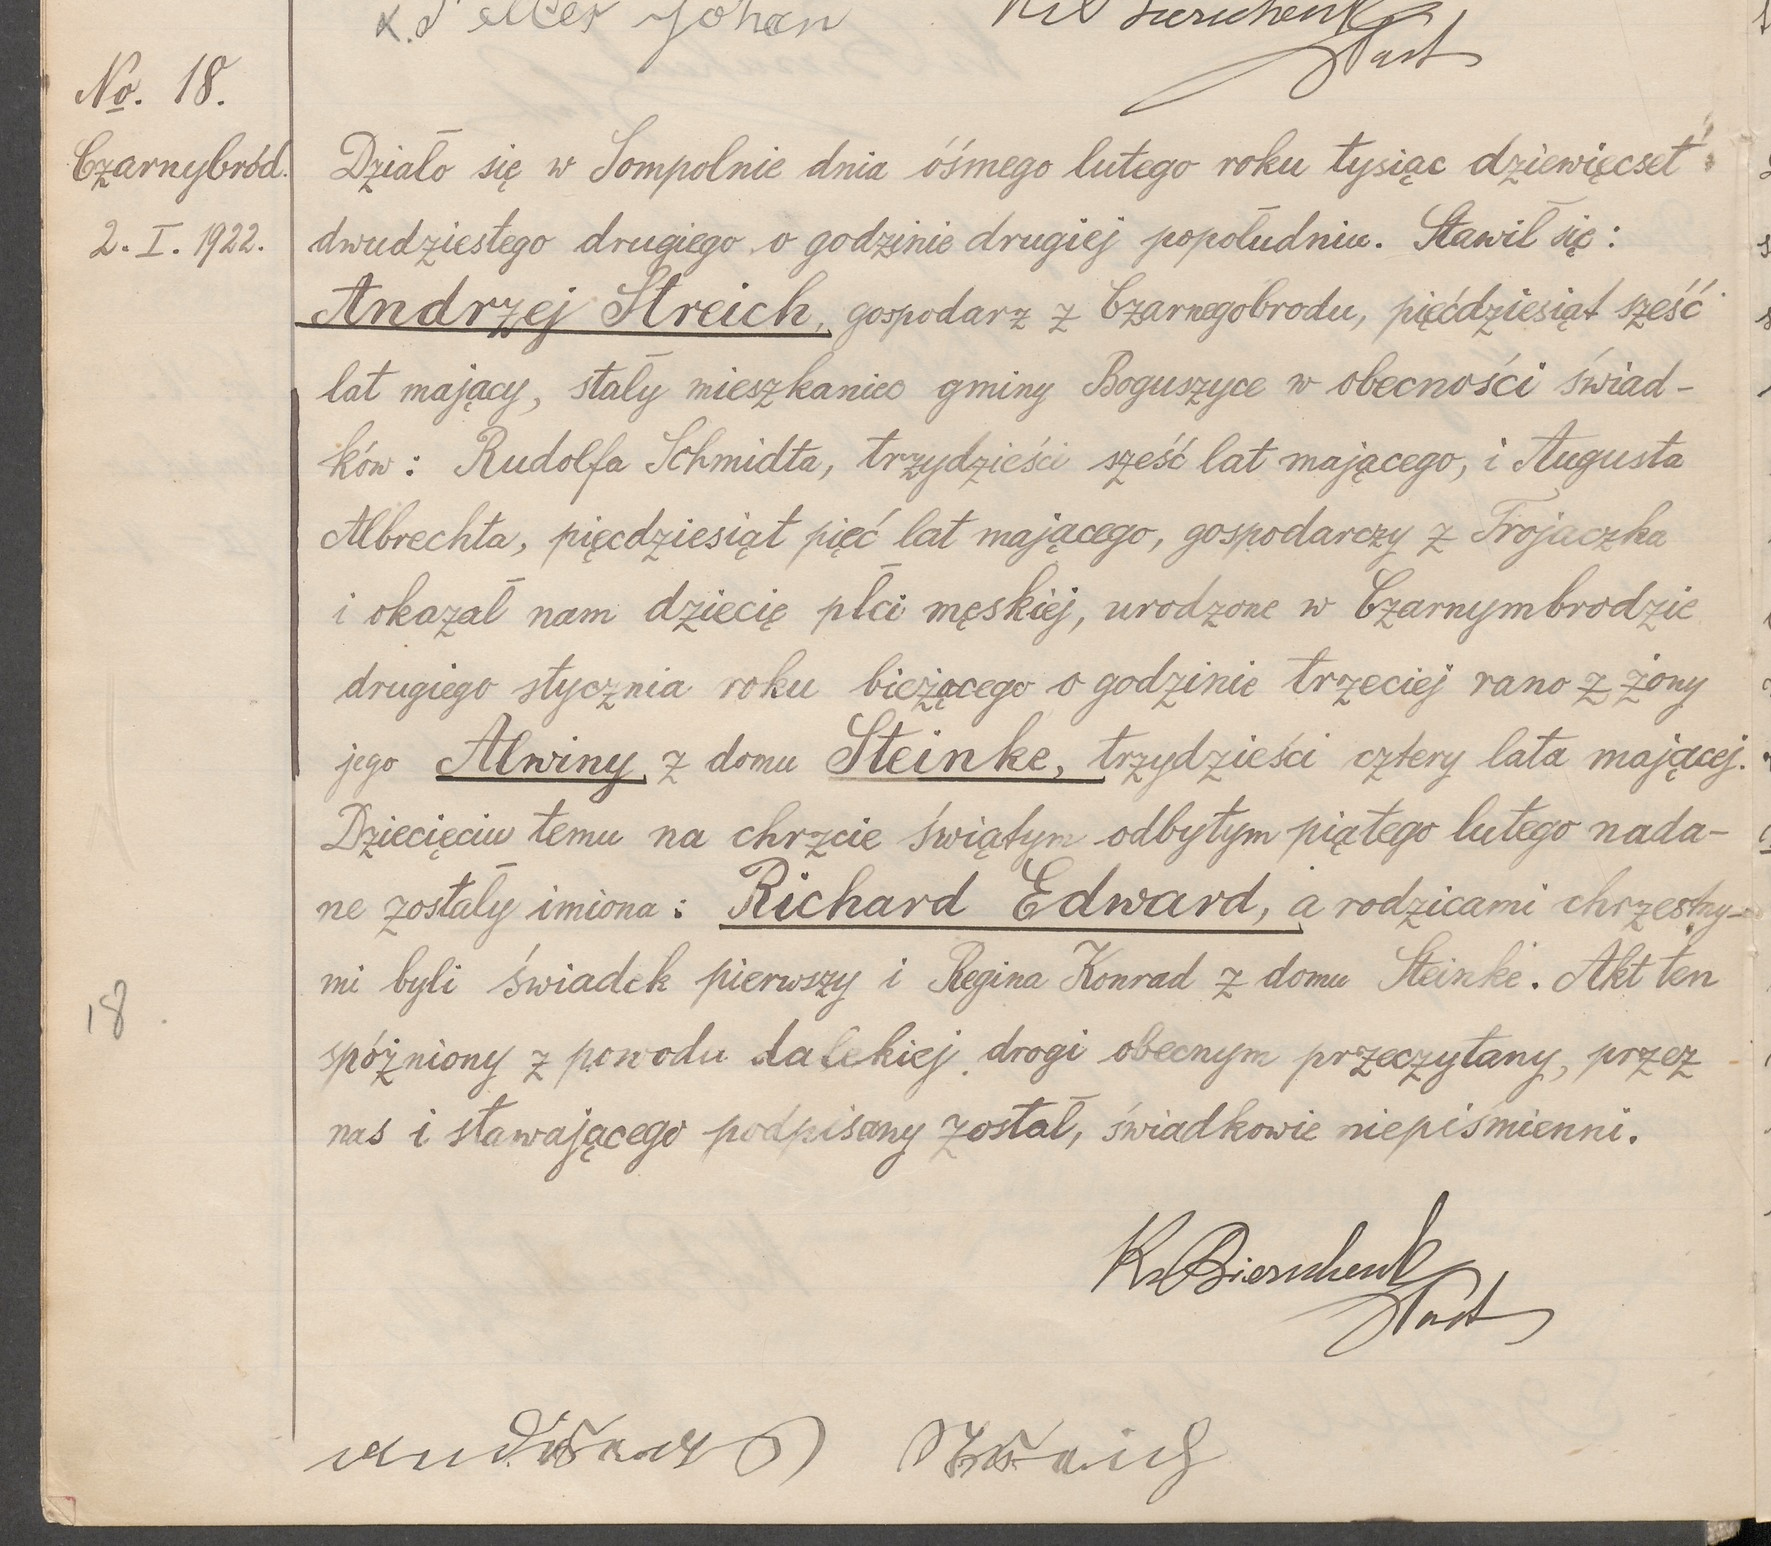 Johan Ks Bierschenk
Past
No. 18.
Czarnybród.
2. I. 1922.
Działo się w Sompolnie dnia óśmego lutego roku tysiąc dziewięcset
dwudziestego drugiego o godzinie drugiej popołudniu. Stawił się:
Andrzej Streich, gospodarz z Czarnegobrodu, pięćdziesiąt sześć
lat mający, stały mieszkaniec gminy Boguszyce w obecności świad-
ków: Rudolfa Schmidta, trzydzieści sześć lat mającego, i Augusta
Albrechta, pięcdziesiąt pięć lat mającego, gospodarczy z Trojaczka
i okazał nam dziecię płci męskiej, urodzone w Czarnymbrodzie
drugiego stycznia roku bieżącego o godzinie trzeciej rano z żony
jego Alwiny z domu Steinke, trzydzieści cztery lata mającej.
Dziecięciu temu na chrzcie świątym odbytym piątego lutego nada-
ne zostały imiona: Richard Edward, a rodzicami chrzestny-
mi byli świadek pierwszy i Regina Konrad z domu Steinke. Akt ten
spóżniony z powodu dalekiej drogi obecnym przeczytany, przez
nas i stawającego podpisany został, świadkowie niepiśmienni.
18
Ks Bierschenk
Past
Andreas Streich